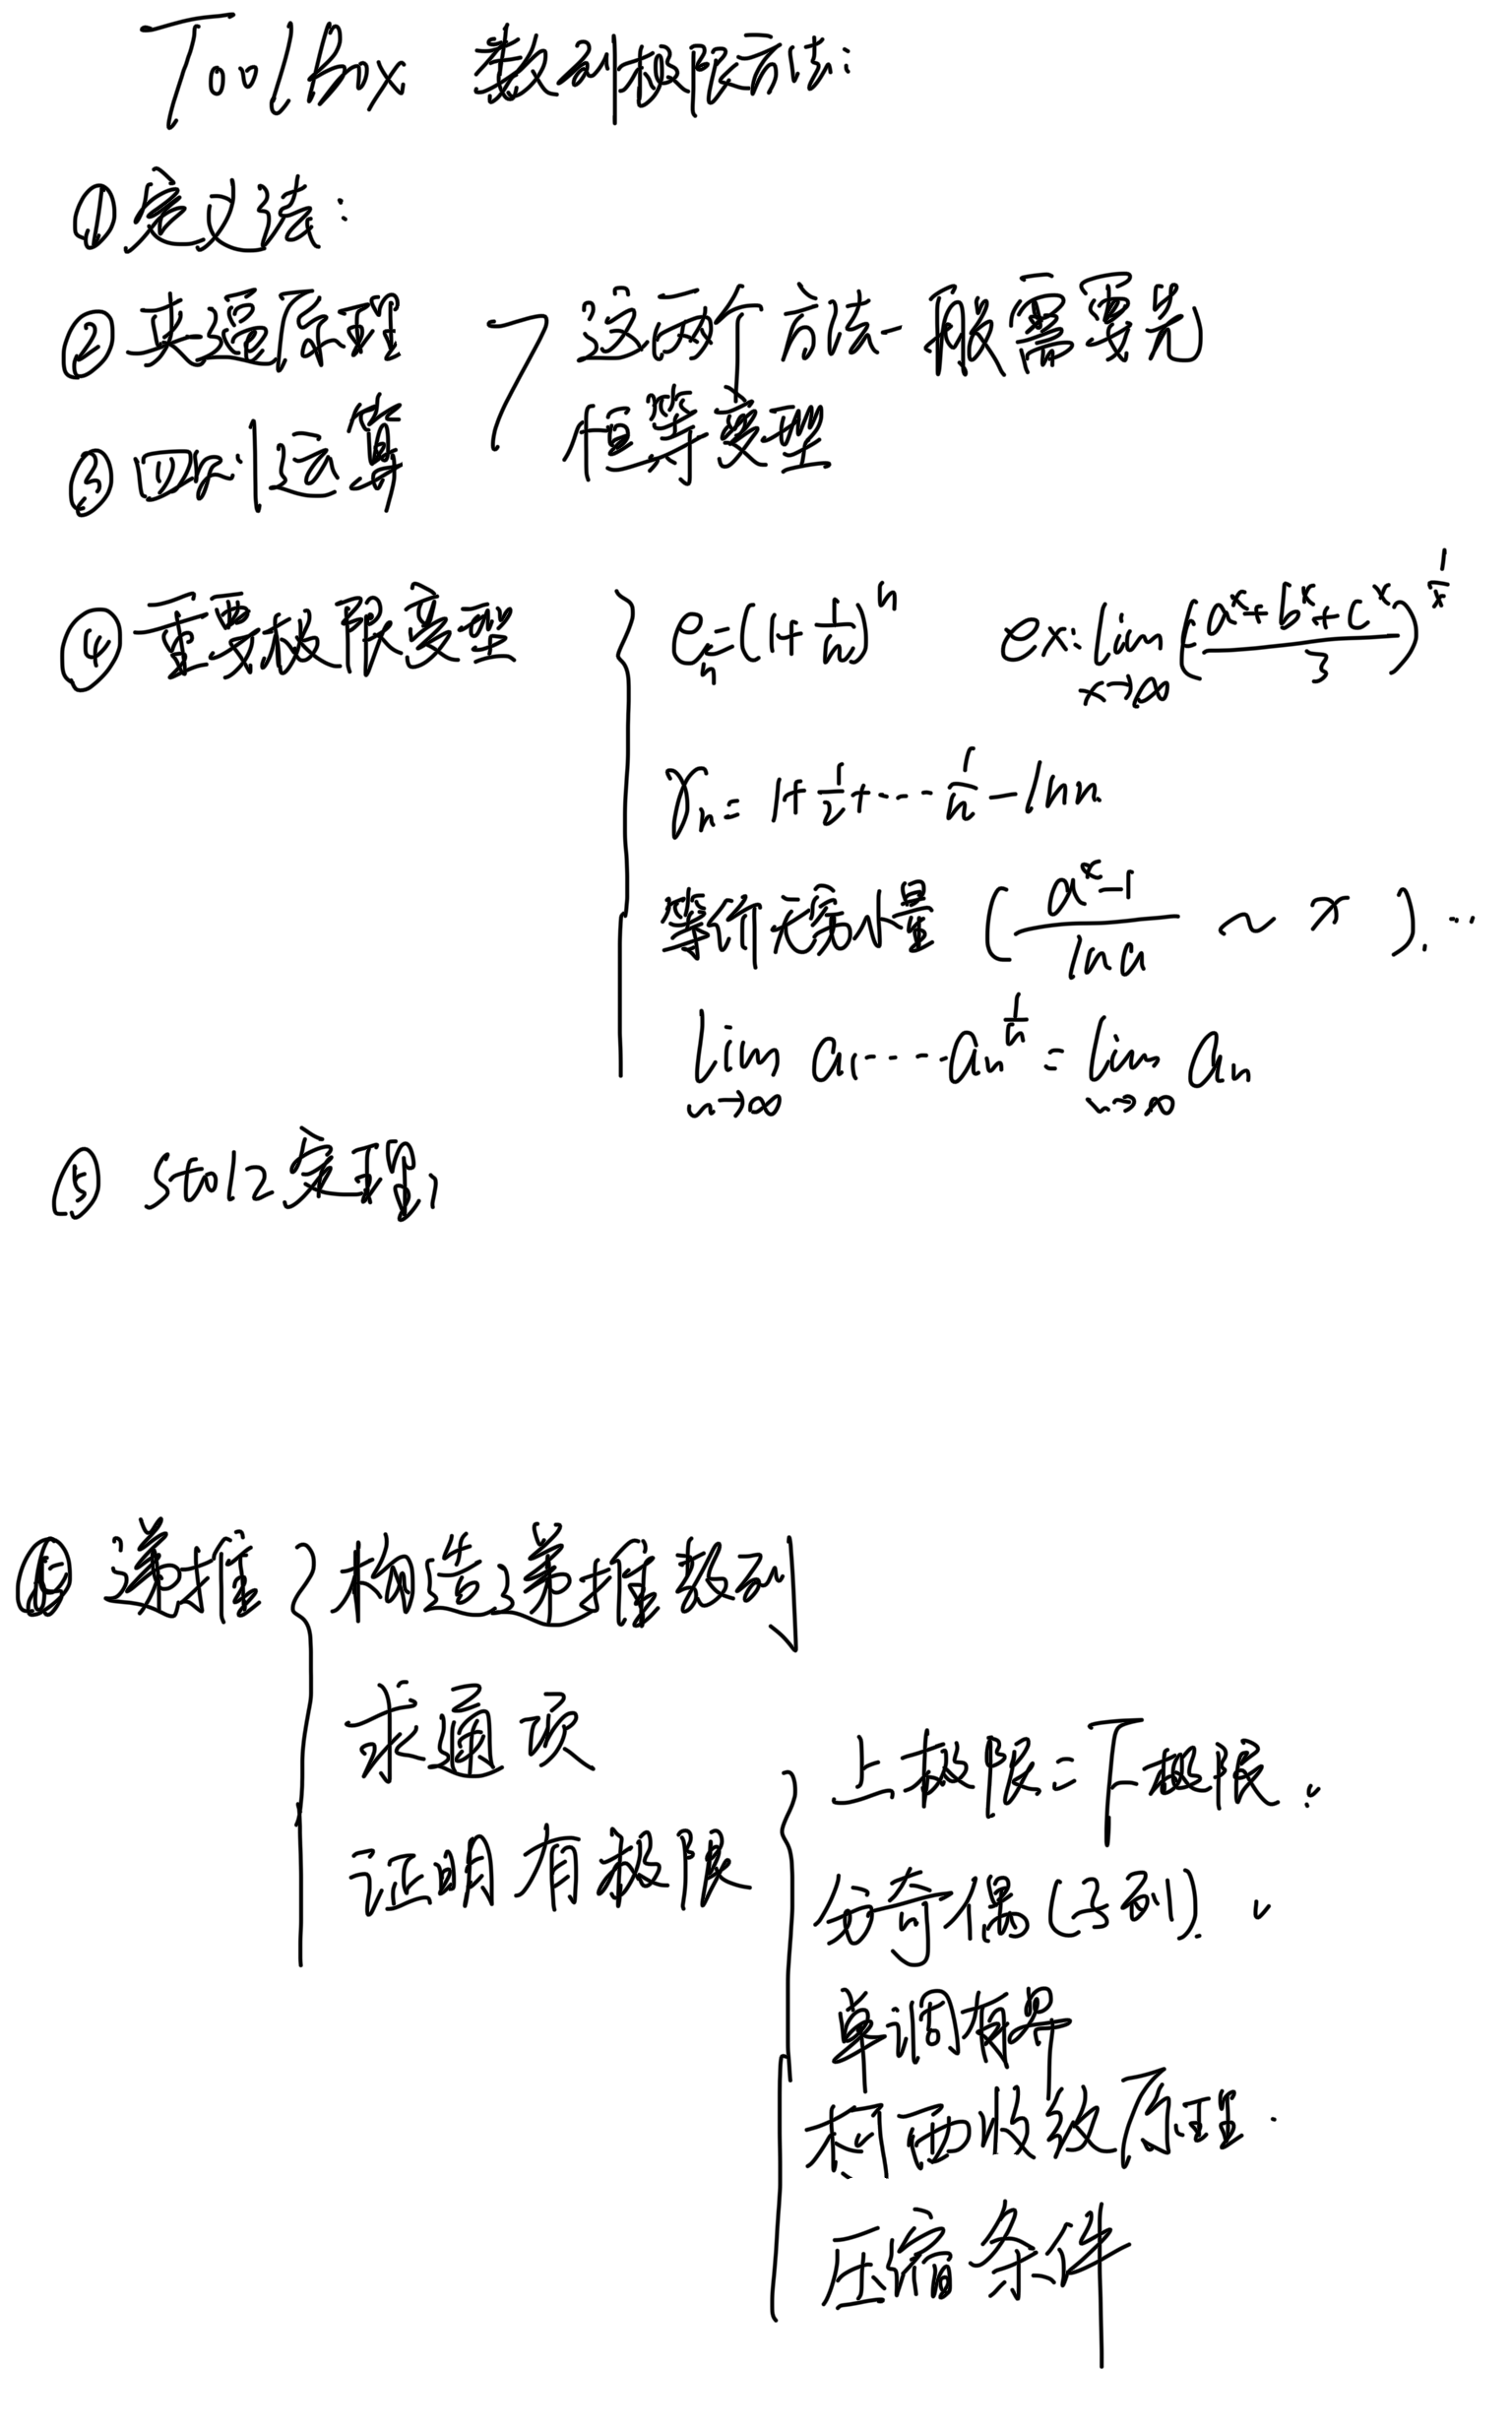 Toolbox 数列极限求法:
①定义法:
②夹逼原理
③四则运算
这两个方法一般需要先
恒等变型
④重要极限变型
eₙ=(1+1/n)^n ex: lim x→∞ ((a^x+b^x+c^x)/3)^(1/x)
γₙ=1+1/2+……1/n-lnn
等价无穷小量 ((a^x-1)/lna ~ x). …
lim n→∞ a₁……aₙ^(1/n)=lim n→∞ aₙ
⑤ stolz定理;
⑥递推
构造递推数列
求通项
证明有极限
上极限=下极限.✓
分奇偶(子列).✓
单调有界
柯西收敛原理.
压缩条件